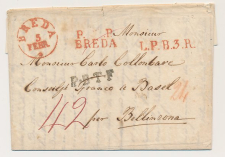 BREDA
5
FEBR
P. P.
BREDA
L.P.B.3.R.
Monsieur
Monsieur Carlo Collombara
franco a Basel
P.B.T.F
42 par Bellinzona